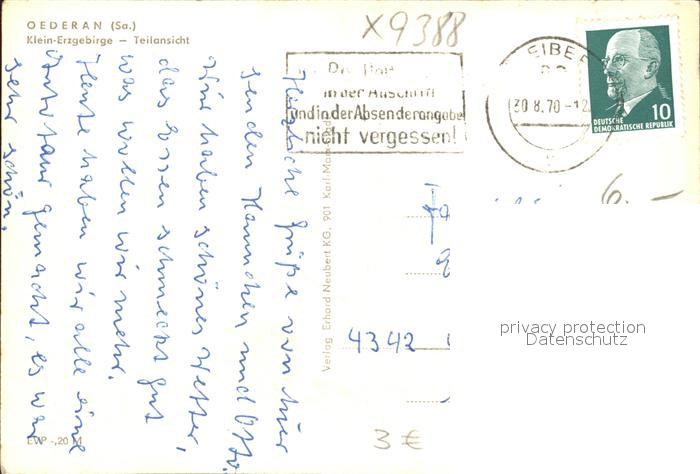 OEDERAN (Sa.)
Klein-Erzgebirge — Teilansicht
X9388
in der Anschrift
und in der Absenderangabe
nicht vergessen!
EIBE
30.8.70-12
10
DEUTSCHE
DEMOKRATISCHE REPUBLIK
6,—
Herzliche Grüße von hier
senden Hannchen und Otto.
Wir haben schönes Wetter,
das Essen schmeckt gut
was wollen wir mehr.
Heute haben wir alle eine
Autotour gemacht, es war
sehr schön.
Verlag Erhard Neubert KG, 901 Karl-Marx-Stadt
4342
privacy protection
Datenschutz
EVP -,20 M
3 €